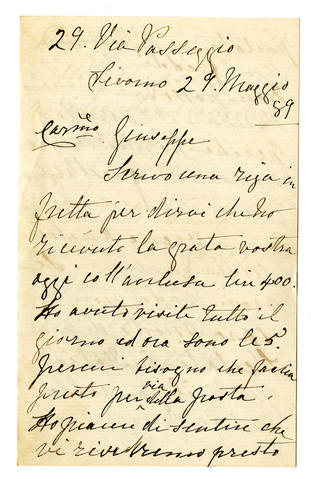 29. Via Passeggio
Livorno 29. Maggio
89
Carmo. Giuseppe
Scrivo una riga in
fretta per dirvi che ho
ricevuto la grata vostra
oggi coll'anclusa lire 400.
Ho avuto visite tutto il
giorno ed ora sono le 5.
percui bisogno che faccia
presto per via della posta.
Ho piacere di sentire che
vi rivedremo presto